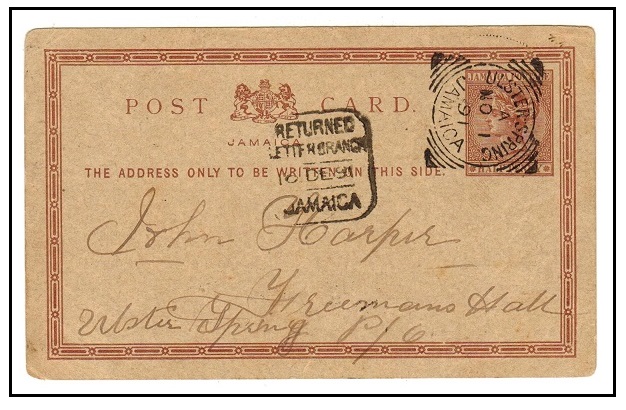 POST CARD.
JAMAICA
THE ADDRESS ONLY TO BE WRITTEN ON THIS SIDE.
ULSTER-SPRING
A
NO 1
91
JAMAICA
RETURNED
LETTER BRANCH
10 DE 91
JAMAICA
John Harper
Freemans Hall
Ulster Spring P/O